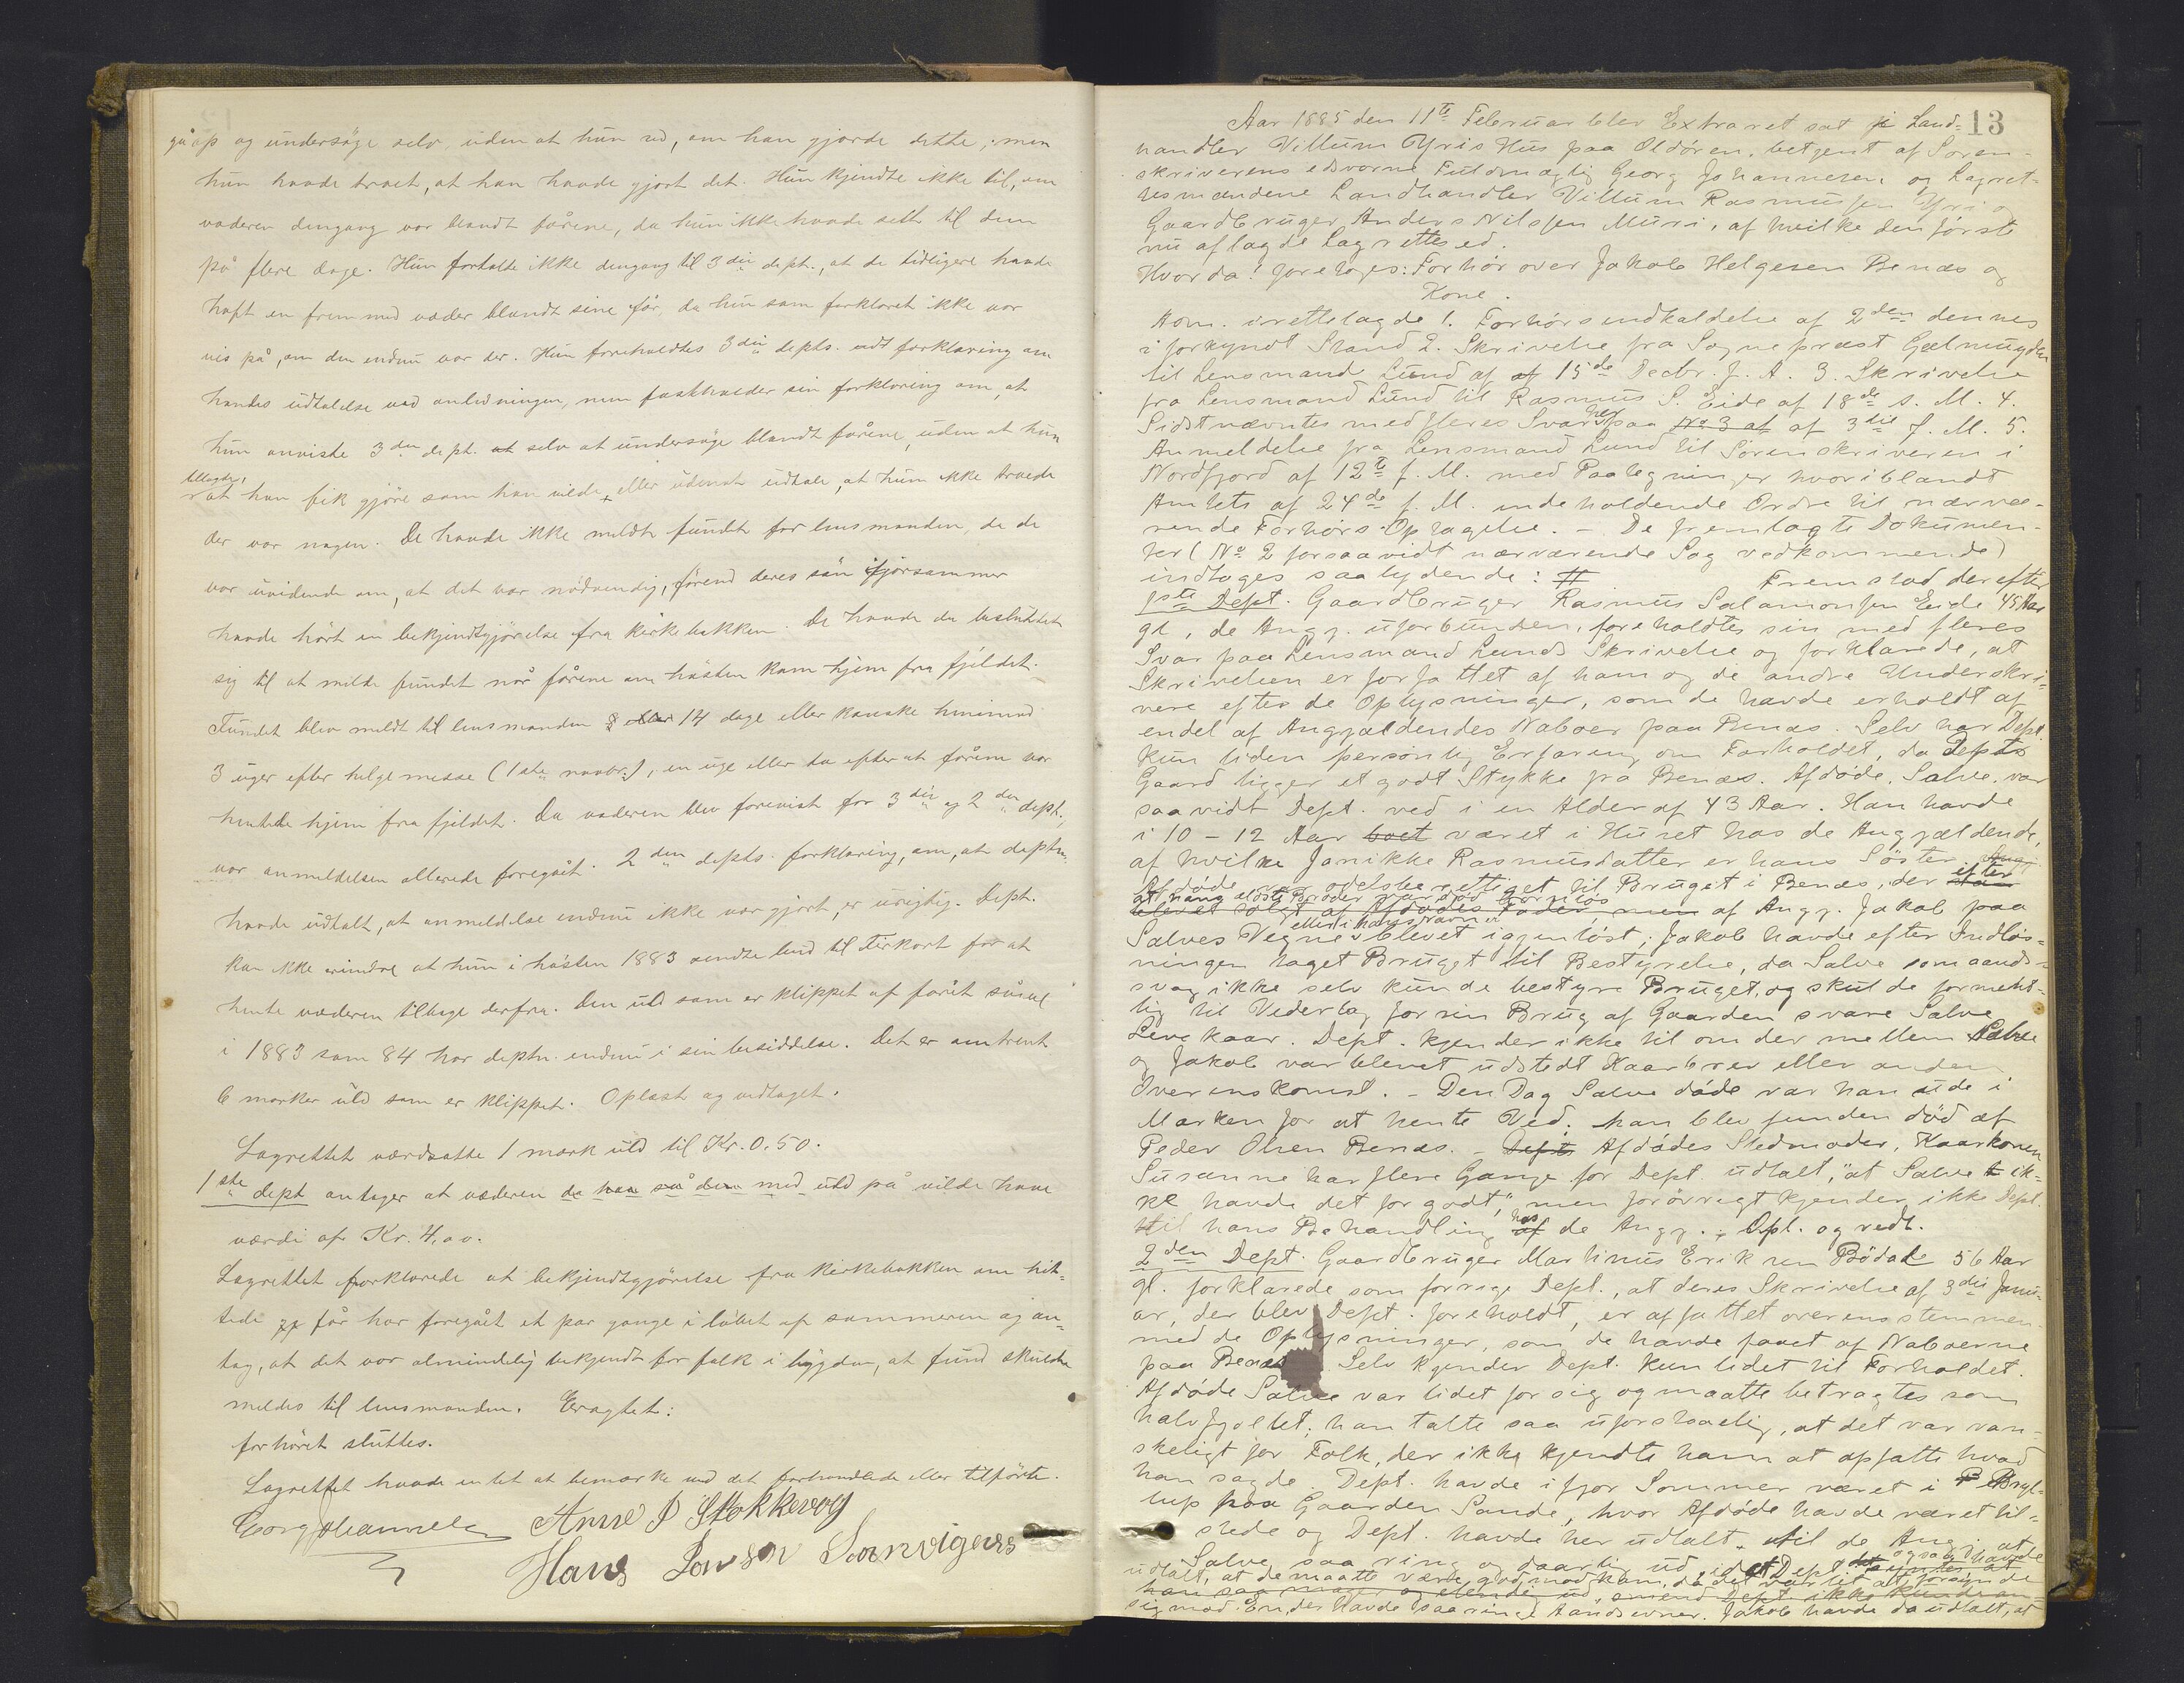 gå op og undersøge selv, uden at hun ved, om han gjorde dette, men
hun havde troet, at han havde gjort det. Hun kjendte ikke til, om
væderen dengang var blandt fårene, da hun ikke havde sett til dem
på flere dage. Hun fortalte ikke dengang til 3die dept., at de tidligere havde
haft en fremmed væder blandt sine får, da hun som forklaret ikke var
vis på, om den endnu var der. Hun foreholdtes 3die depts. edl forklaring om
hendes udtalelse ved anledningen, men fastholder sin forklaring om, at
hun anviste 3die dept. at selv at undersøge blandt fårene, uden at hun
tillagde,
at han fik gjøre som han vilde, eller udenat udtale, at hun ikke troede
der var nogen. De havde ikke meldt fundet for lensmanden, da de
var uvidende om, at det var nödvendig, förend deres sön ifjorsommer
havde hört en bekjendtgjörelse fra kirkebakken. De havde da besluttet
sig til at melde fundet når fårene om hösten kom hjem fra fjeldet.
Fundet blev meldt til lensmanden 8 eller 14 dage eller kanske henimod
3 uger efter helgemesse (1ste novbr.), en uge eller to efter at fårene var
hentede hjem fra fjeldet. Da væderen blev forevist for 3die og 2den dept.,
var anmeldelsen allerede foregået. 2den depts. forklaring, om, at deptn.
havde udtalt, at anmeldelse endnu ikke var gjort, er urigtig. Dept.
kan ikke erindre at hun i hösten 1883 sendte bud til Firkort for at
hente væderen tilbage derfra. Den uld som er klippet af fåret såvel
i 1883 som 84 har deptn. endnu i sin besiddelse. Det er omtrent
6 marker uld som er klippet. Oplæst og vedtaget.
Lagrettet værdsatte 1 mark uld til Kr. 0.50.
1ste dept antager at væderen da han så den med uld på vilde have
værdi af Kr. 4,00.
Lagrettet forklarede at bekjendtgjörelse fra kirkebakken om hit-
tede får har foregået et par gange i löbet af sommeren og an-
tog, at det var almindelig bekjendt for folk i bygden, at fund skulde
meldes til lensmanden. Eragtet:
forhöret sluttes.
Lagrettet havde intet at bemærke ved det forhandlede eller tilförte.
Georg Johannesen Anne J Stokkevog
Hans Jonson Sanvigens
13
Aar 1885 den 11te Februar blev Extraret sat i Land-
handler Villum Yris Hus paa Oldören, betjent af Soren-
skriverens edsvorne Fuldmægtig Georg Johannesen og Lagret-
tesmændene Landhandler Villum Rasmussen Yri og
Gaardbruger Anders Nilssen Muri, af hvilke den förste
nu aflagde Lagrettesed.
Hvorda! foretoges: Forhör over Jakob Helgesen Benæs og
Kone.
Adm. irettelagde 1. Forhörsindkaldelse af 2den dennes
i forkyndt Stand 2. Skrivelse fra Sogneprest Gjelmuyden
til Lensmand Lund af af 15de Decbr. f. A. 3. Skrivelse
fra Lensmand Lund til Rasmus S. Eide af 18de s. M. 4.
Sidstnævntes medfleres Svar herpaa No 3 af af 3die f. M. 5.
Anmeldelse fra Lensmand Lund til Sorenskriveren i
Nordfjord af 12te f. M. med Paategninger hvoriblandt
Amtets af 24de f. M. indeholdende Ordre til nærvæ-
rende Forhörs Optagelse. – De fremlagte Dokumen-
ter (No 2 forsaavidt nærværende Sag vedkommende)
indtages saalydende: # Fremstod derefter
1ste Dept. Gaardbruger Rasmus Salamonsen Eide 45 Aar
gl, de Angj. uforbunden, foreholdtes sin med fleres
Svar paa Lensmand Lunds Skrivelse og forklarede, at
Skrivelsen er forfattet af ham og de andre Underskri-
vere efter de Oplysninger, som de havde erholdt af
endel af Angjældendes Naboer paa Benæs. Selv har Dept.
kun liden personlig Erfaring om Forholdet, da Depts
Gaard ligger et godt Stykke fra Benæs. Afdöde, Salve, var
saavidt Dept. ved i en Alder af 43 Aar. Han havde
i 10 – 12 Aar boet været i Huset hos de Angjældende,
af hvilke Janikke Rasmusdatter er hans Söster. Angj
Afdöde var odelsberettiget til Bruget i Benæs, der efter
at hans ældste Broder var död barnlös
blevet solgt af Afdödes Fader, men af Angj. Jakob paa
eller i hans Navn er
Salves Vegne blevet igjenlöst; Jakob havde efter Indlös-
ningen taget Bruget til Bestyrelse, da Salve som aands-
svag ikke selv kunde bestyre Bruget, og skulde forment-
lig til Vederlag for sin Brug af Gaarden svare Salve
Levekaar. Dept. kjender ikke til om der mellem Salve
og Jakob var blevet udstedt Kaarbrev eller anden
Overenskomst. – Den Dag Salve döde var han ude i
Marken for at hente Ved; han blev funden död af
Peder Olsen Benæs. – Depts Afdödes Stedmoder, Kaarkonen
Susanne har flere Gange for Dept. udtalt, "at Salve ik-
ke havde det for godt," men forövrigt kjender ikke Dept.
til hans Behandling af hos de Angj. . Opl. og vedt.
2den Dept. Gaardbruger Martinus Eriksen Bödal 56 Aar
gl. forklarede som forrige Dept., at deres Skrivelse af 3die Janu-
ar, der blev Dept. foreholdt, er affattet overensstemmen-
med de Oplysninger, som de havde faaet af Naboerne
paa Benæs. Selv kjender Dept. kun lidet til Forholdet.
Afdöde Salve var lidet for sig og maatte betragtes som
halvfjollet; han talte saa uforstaaelig, at det var van-
skeligt for Folk, der ikke kjendte ham at opfatte hvad
han sagde. Dept. havde i fjor Sommer været i Bryl-
lup paa Gaarden Sande, hvor Afdöde havde været til-
stede og Dept. havde her udtalt til de Angj. at
Salve saa ring og daarlig ud, idet Dept. ogsaa havde
udtalt, at de maatte være god mod ham, da det var let at forsynde
han saa mager og elendig ud, omend Dept ikke kunde
sig mod En, der havde saa ringe Aandsevner. Jakob havde da udtalt, at